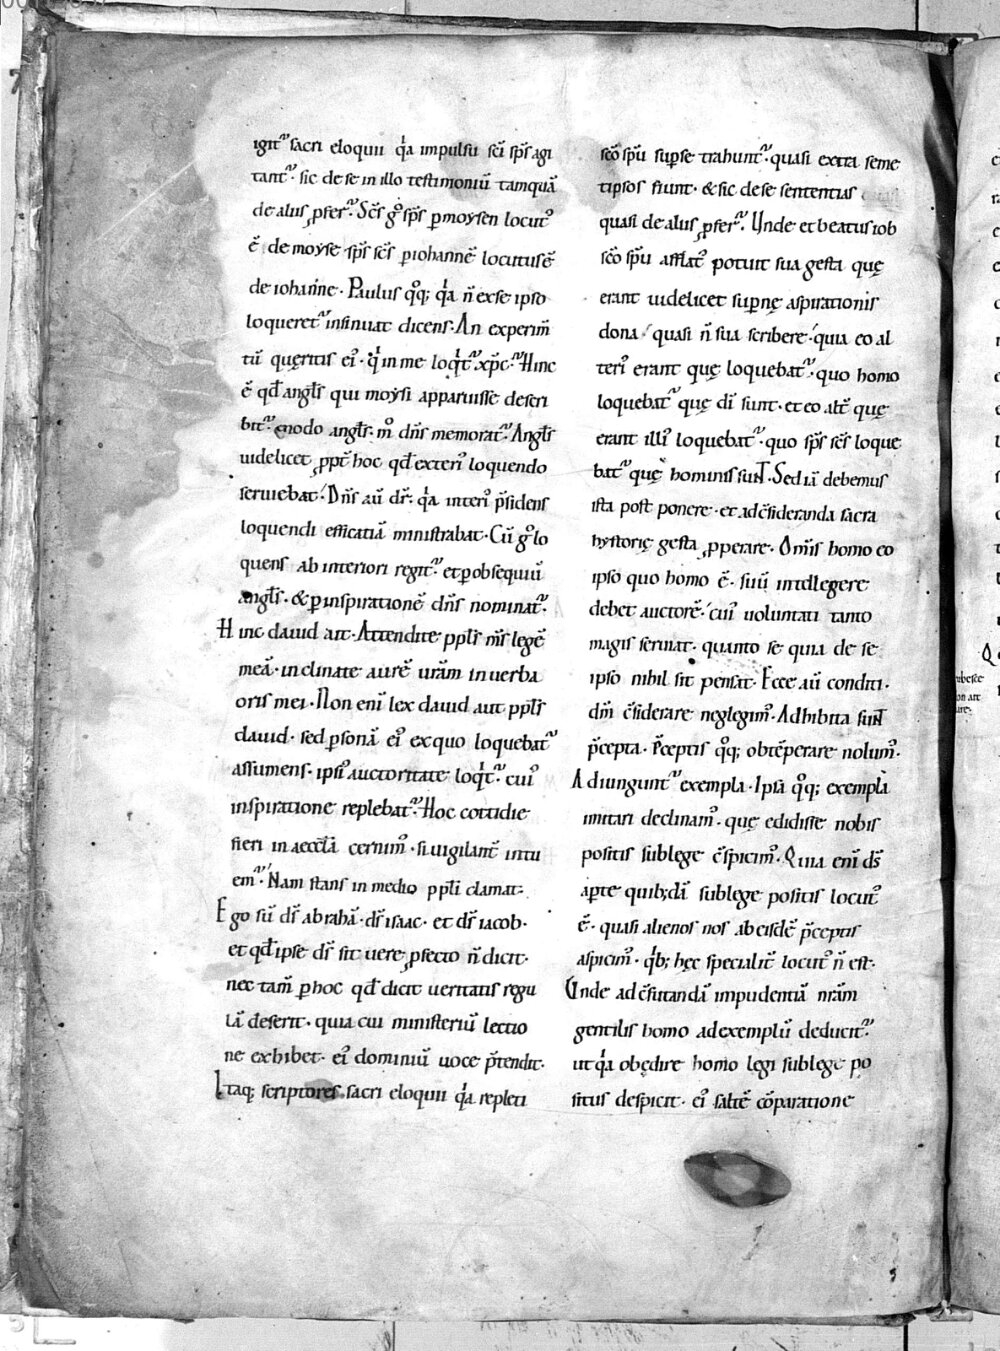 igit᷑ sacri eloquii q̇a impulsu sc̄i sp̄s agi
tant᷑. sic de se in illo testimoniū tamquā
de aliis ꝓfer᷑. Sc̄s gͦ sp̄s ꝑ moẏsen locutꝰ
ē de moẏse sp̄s sc̄s ꝑ iohannē locutus ē
de iohanne. Paulus qͦq; q̇a n̄ ex se ipso
loqueret᷑ insinuat dicens. An experim̄
tū quęritis eiꝰ. q̇ in me loq̇t᷑ xp̄c. Hinc
ē qd̄ angl̄s qui moẏsi apparuisse descri
bit᷑. modo angl̄s. mͦ dn̄s memorat᷑. Angl̄s
uidelicet ꝓpt̄ hoc qd̄ exteriꝰ loquendo
seruiebat. Dn̄s aū dr̄. q̇a interiꝰ p̄sidens
loquendi efficatiā ministrabat. Cū gͦ lo
quens ab interiori regit᷑. et ꝑ obsequiū
angl̄s. & ꝑ inspirationē dn̄s nominat᷑.
Hinc dauid ait. Attendite ppl̄s m̄s legē
meā. inclinate aurē ur̄am in uerba
oris mei. Non eni lex dauid aut ppl̄s
dauid. sed ꝑsonā eiꝰ ex quo loquebat᷑
assumens. ipsiꝰ auctoritate loq̇t᷑. cuiꝰ
inspiratione replebat᷑. Hoc cottidie
fieri in aeccl̄a cernimꝰ. si uigilant̄ intu
em᷑. Nam stans in medio ppl̄i clamat.
Ego sū ds̄ abrahā. ds̄ isaac. et ds̄ iacob.
et qd̄ ipse ds̄ sit uere ꝓfecto n̄ dicit.
nec tam̄ ꝑ hoc qd̄ dicit ueritatis regu
lā deserit. quia cui ministeriū lectio
ne exhibet. eiꝰ dominiū uoce p̄tendit.
Itaq; scriptores sacri eloquii q̇a repleti
sc̄o sp̄u supͥ se trahunt᷑. quasi extra seme
tipsos fiunt. & sic de se sententias
quasi de aliis ꝓfer᷑. Unde et beatus iob
sc̄o sp̄u afflatꝰ potuit sua gesta quę
erant uidelicet supnę aspirationis
dona quasi n̄ sua scribere. quia eo al
teriꝰ erant quę loquebat᷑. quo homo
loquebat᷑ quę dī sunt. et eo alt̄ quę
erant illiꝰ loquebat᷑. quo sp̄s sc̄s loque
bat᷑ quę hominis sunt. Sed iā debemus
ista post ponere. et ad c̄sideranda sacra
hystorię gesta ꝓperare. Om̄is homo eo
ipso quo homo ē. suū intellegere
debet auctorē. cuiꝰ uoluntati tanto
magis seruiat. quanto se quia de se
ipso nihil sit pensat. Ecce aū conditi.
dm̄ c̄siderare neglegimꝰ. Adhibita sunt
p̄cepta. P̄ceptis qͦq; obtēperare nolumꝰ.
Adiungunt᷑ exempla. Ipsa qͦq; exempla
imitari declinamꝰ. quę edidisse nobis
positis sub lege c̄spicimꝰ. Quia eni ds̄
aꝑte quib;dā sub lege positis locutꝰ
ē. quasi alienos nos ab eisdē p̄ceptis
aspicimꝰ. q̇b; hęc specialit̄ locutꝰ n̄ est.
Unde ad c̄futandā impudentiā nr̄am
gentilis homo ad exemplū deducit᷑.
ut q̇a obędire homo legi sub lege po
situs despicit. eiꝰ saltē cōparatione